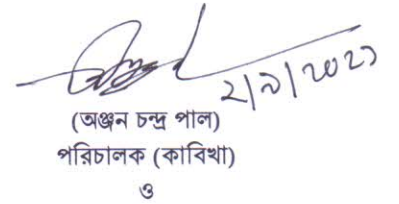 ২/৯/২০২১
(অঞ্জন চন্দ্র পাল)
পরিচালক (কাবিখা)
ও